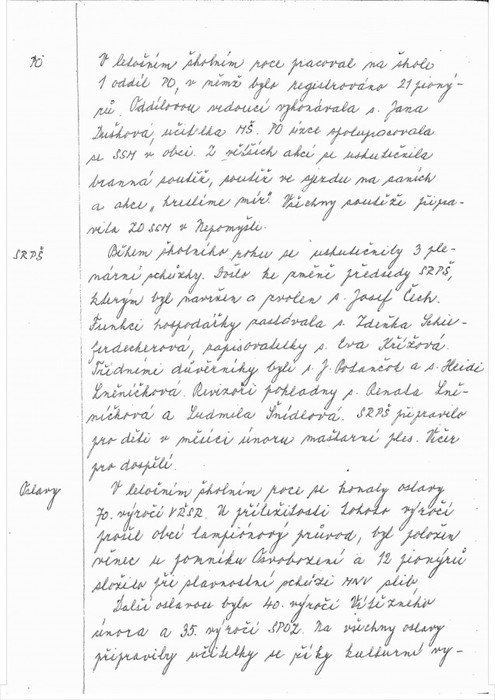 PO
V letošním školním roce pracoval na škole
1 oddíl PO, v němž bylo registrováno 21 pioný-
rů. Oddílovou vedoucí vykonávala s. Jana
Dušková, učitelka MŠ. PO úzce spolupracovala
se SSM v obci. Z větších akcí se uskutečnila
branná soutěž, soutěž ve sjezdu na saních
a akce „kreslíme mír". Všechny soutěže připra-
vila ZO SSM v Nepomyšli.
SRPŠ
Během školního roku se uskutečnily 3 ple-
nární schůzky. Došlo ke změně předsedy SRPŠ,
kterým byl navržen a zvolen s. Josef Čech.
Funkci hospodářky zastávala s. Zdeňka Schie-
ferdecherová, zapisovatelky s. Eva Křížová.
Třídními důvěrníky byli s. J. Potančok a s. Heidi
Lněníčková. Revizoři pokladny s. Renata Lně-
níčková a Ludmila Šnídlová. SRPŠ připravilo
pro děti v měsíci únoru maškarní ples. Večer
pro dospělé.
Oslavy
V letošním školním roce se konaly oslavy
70. výročí VŘSR. U příležitosti tohoto výročí
prošel obcí lampiónový průvod, byl položen
věnec u pomníku Osvobození a 12 pionýrů
složilo při slavnostní schůzi MNV slib.
Další oslavou bylo 40. výročí Vítězného
února a 35. výročí SPOZ. Na všechny oslavy
připravily učitelky se žáky kulturní vy-